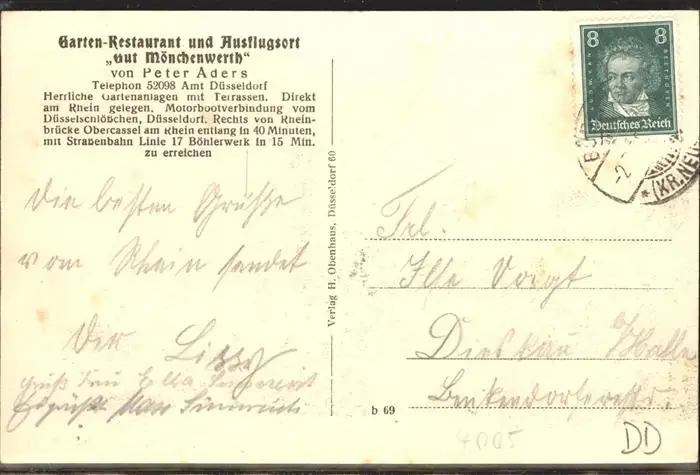 Garten-Restaurant und Ausflugsort
„Gut Mönchenwerth"
von Peter Aders
Telephon 52098 Amt Düsseldorf
Herrliche Gartenanlagen mit Terrassen. Direkt
am Rhein gelegen. Motorbootverbindung vom
Düsselschlößchen, Düsseldorf. Rechts von Rhein-
brücke Obercassel am Rhein entlang in 40 Minuten,
mit Straßenbahn Linie 17 Böhlerwerk in 15 Min.
zu erreichen
Die besten Grüße
vom Rhein sendet
Der
Gruß Frau Ella
Verlag H. Obenhaus, Düsseldorf 60
b 69
8 8
LUDW. VAN BEETHOVEN
Deutsches Reich
(KR. NEU
Frl.
Ilse Voigt
Dieskau / Halle
4005
DD